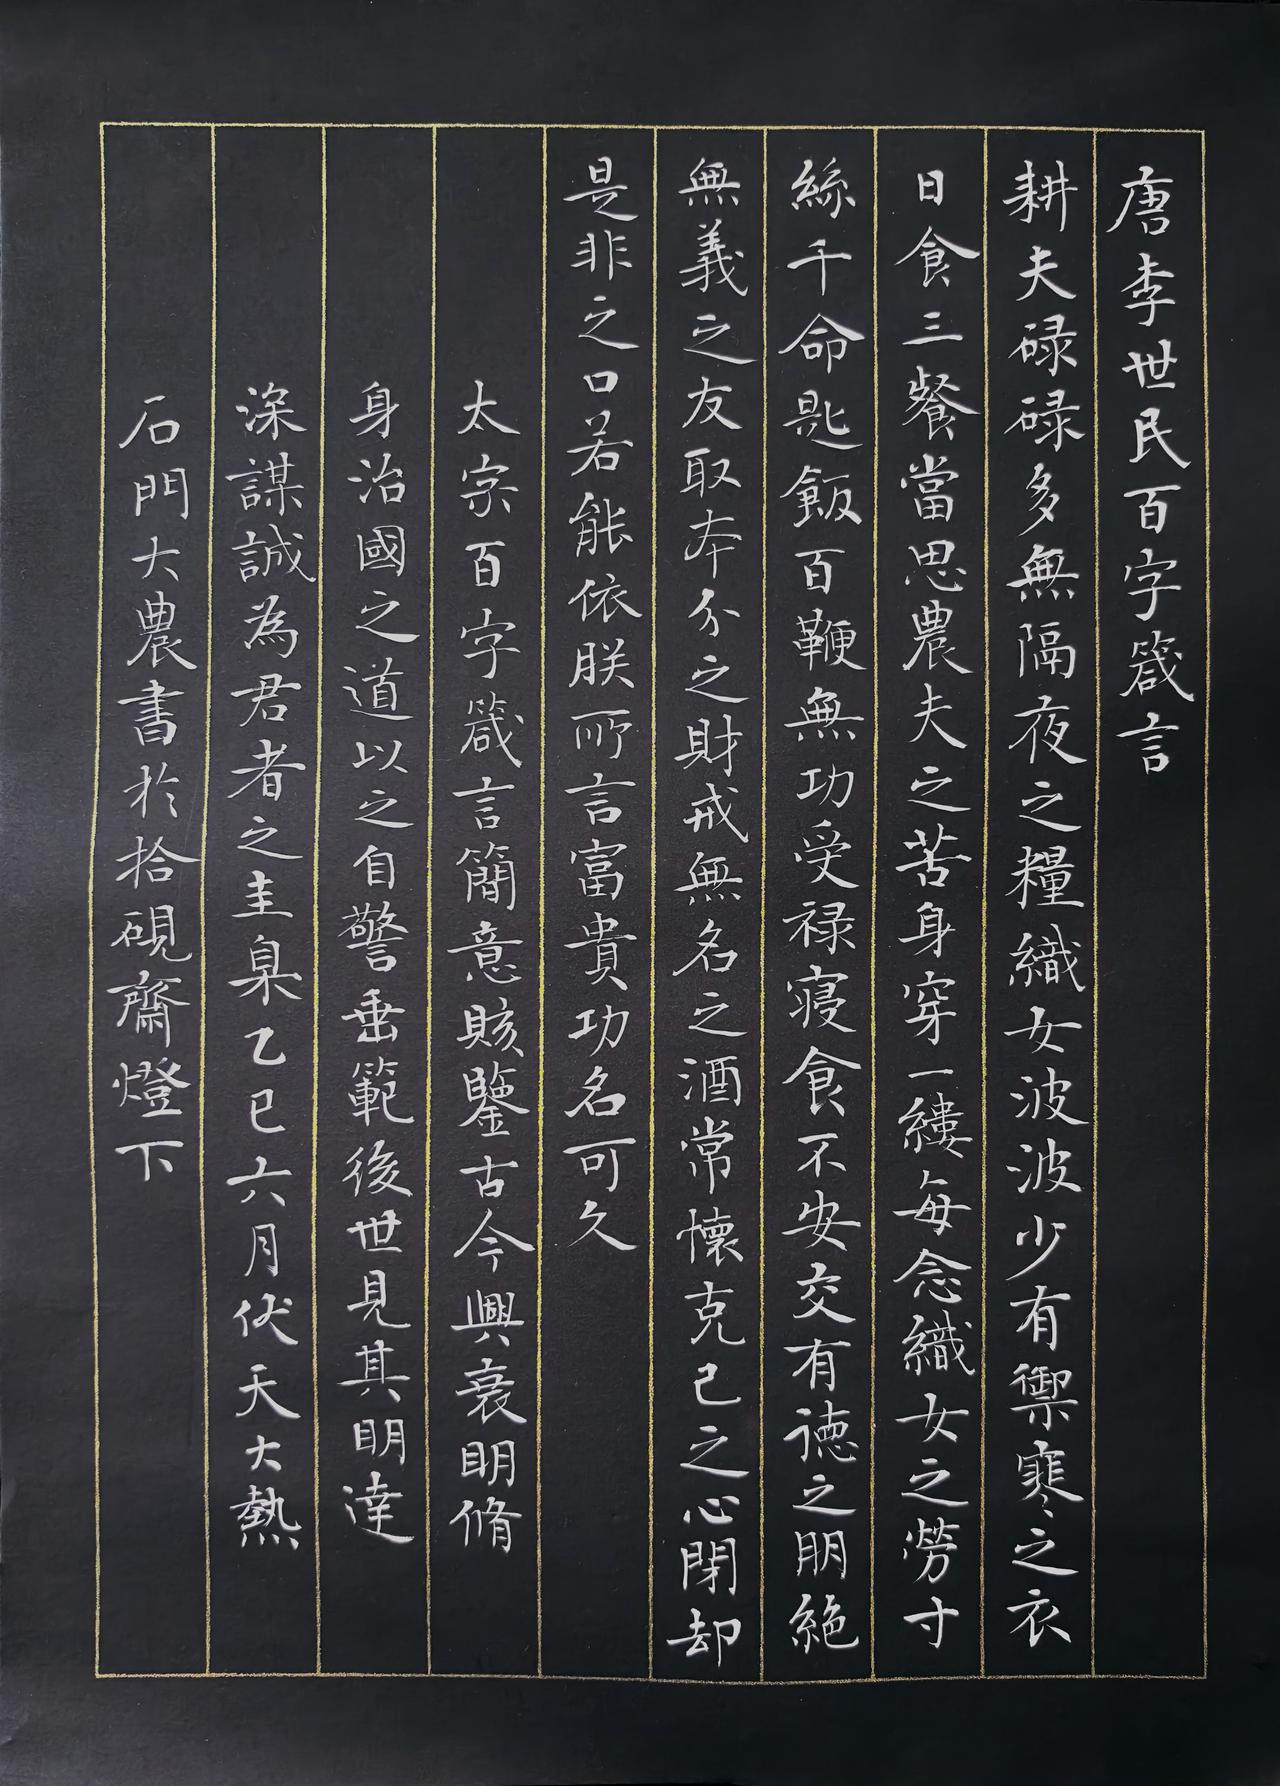 唐李世民百字箴言
耕夫碌碌多無隔夜之糧織女波波少有禦寒之衣
日食三餐當思農夫之苦身穿一縷每念織女之勞寸
絲千命匙飯百鞭無功受禄寝食不安交有德之朋絕
無義之友取夲分之財戒無名之酒常懷克己之心閉却
是非之口若能依朕所言富貴功名可久
太宗百字箴言簡意賅鑒古今興衰明脩
身治國之道以之自警垂範後世見其明達
深謀誠為君者之圭臬乙巳六月伏天大熱
石門大農書於拾硯齋燈下